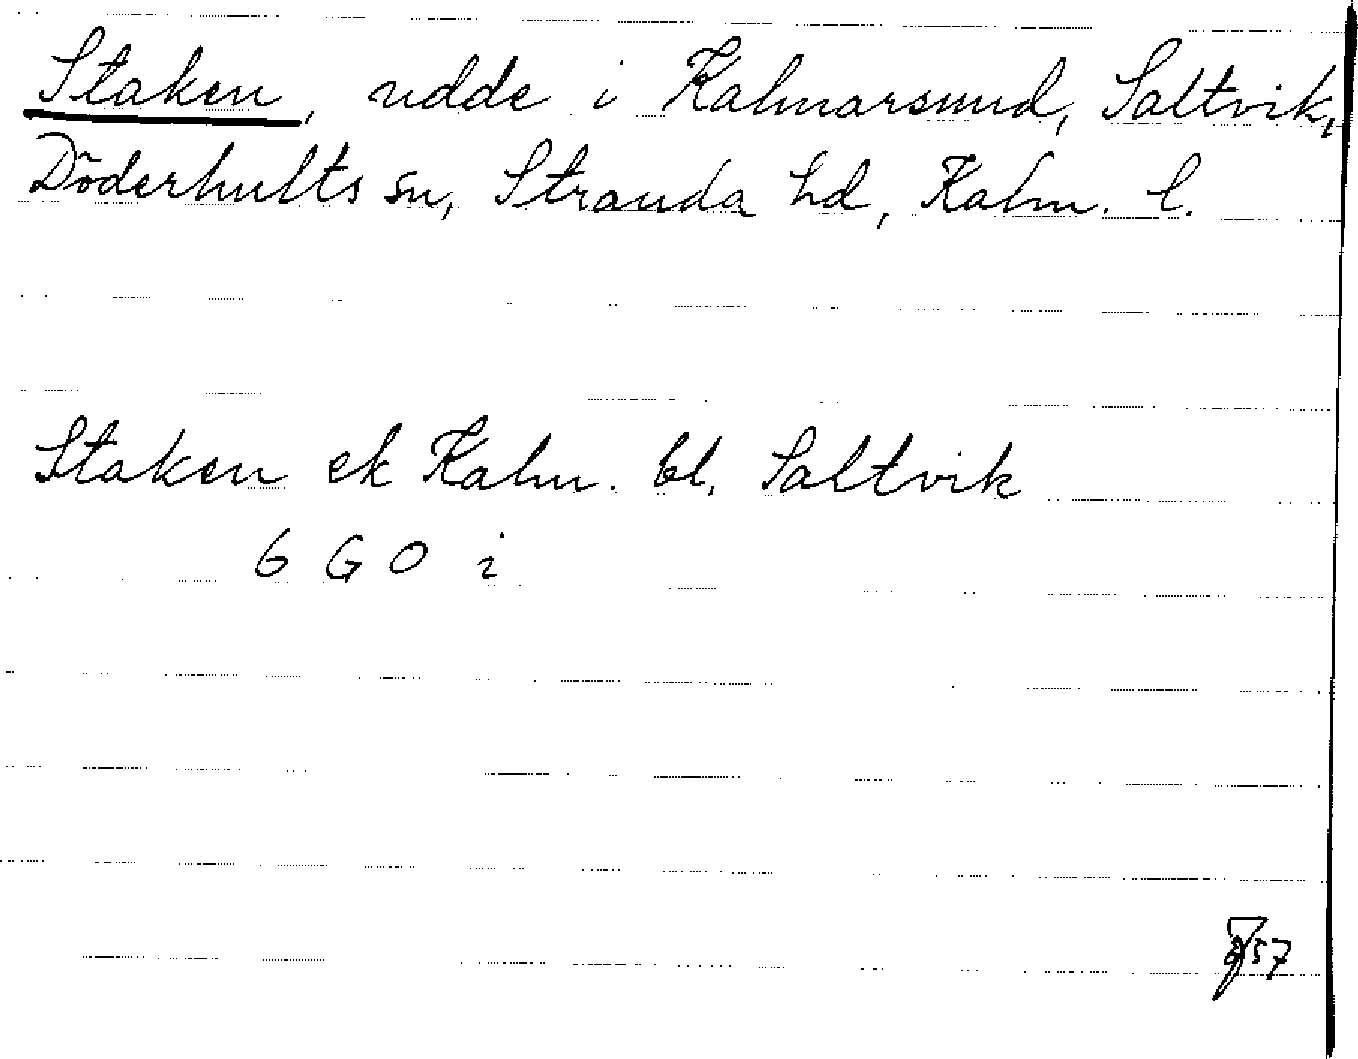 Staken, udde i Kalmarsund, Saltvik,
Döderhults sn, Stranda hd, Kalm. l.
Staken ek Kalm. bl. Saltvik
6 G O i
57